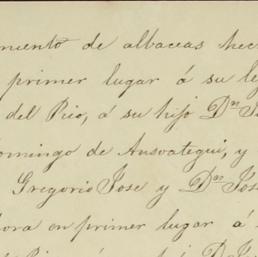 miento de albaceas hec
primer lugar á su le
del Rio, á su hijo Dⁿ
Domingo de Ansoategui, y
Gregorio Jose y Dⁿ Jos
hora en primer lugar á